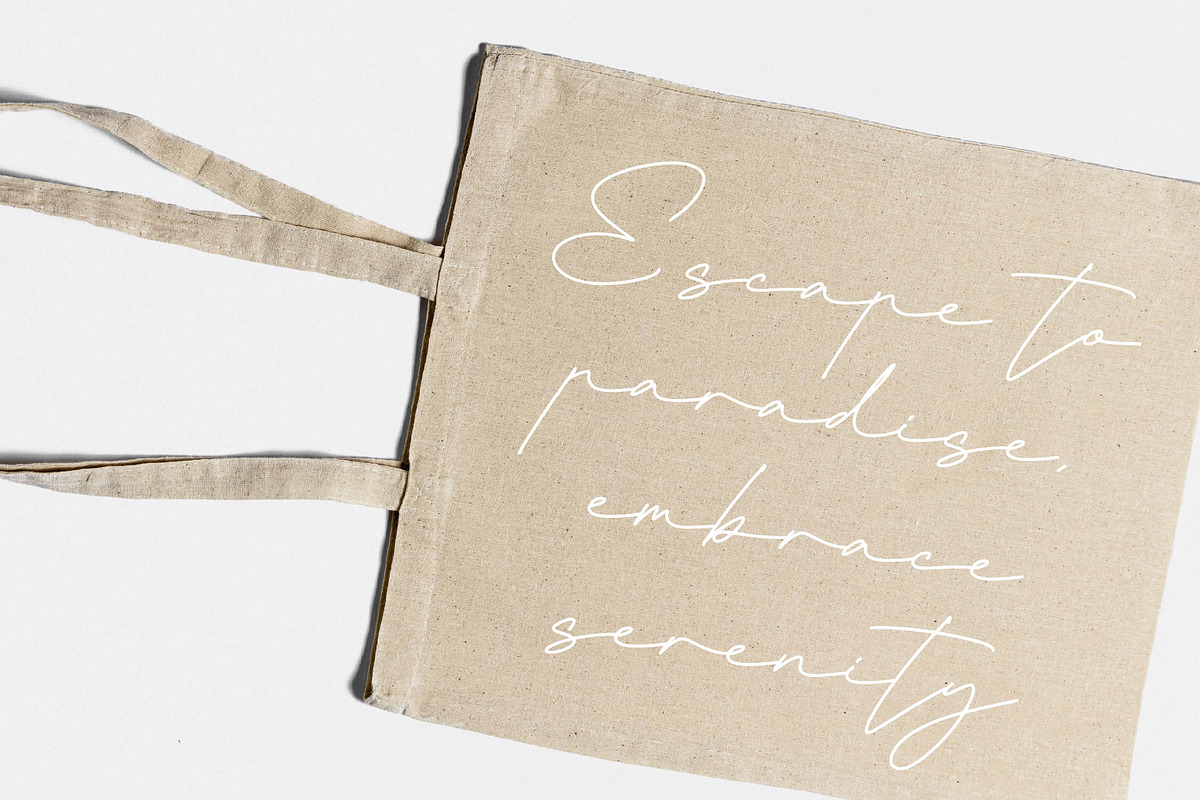 Escape to
paradise,
embrace
serenity